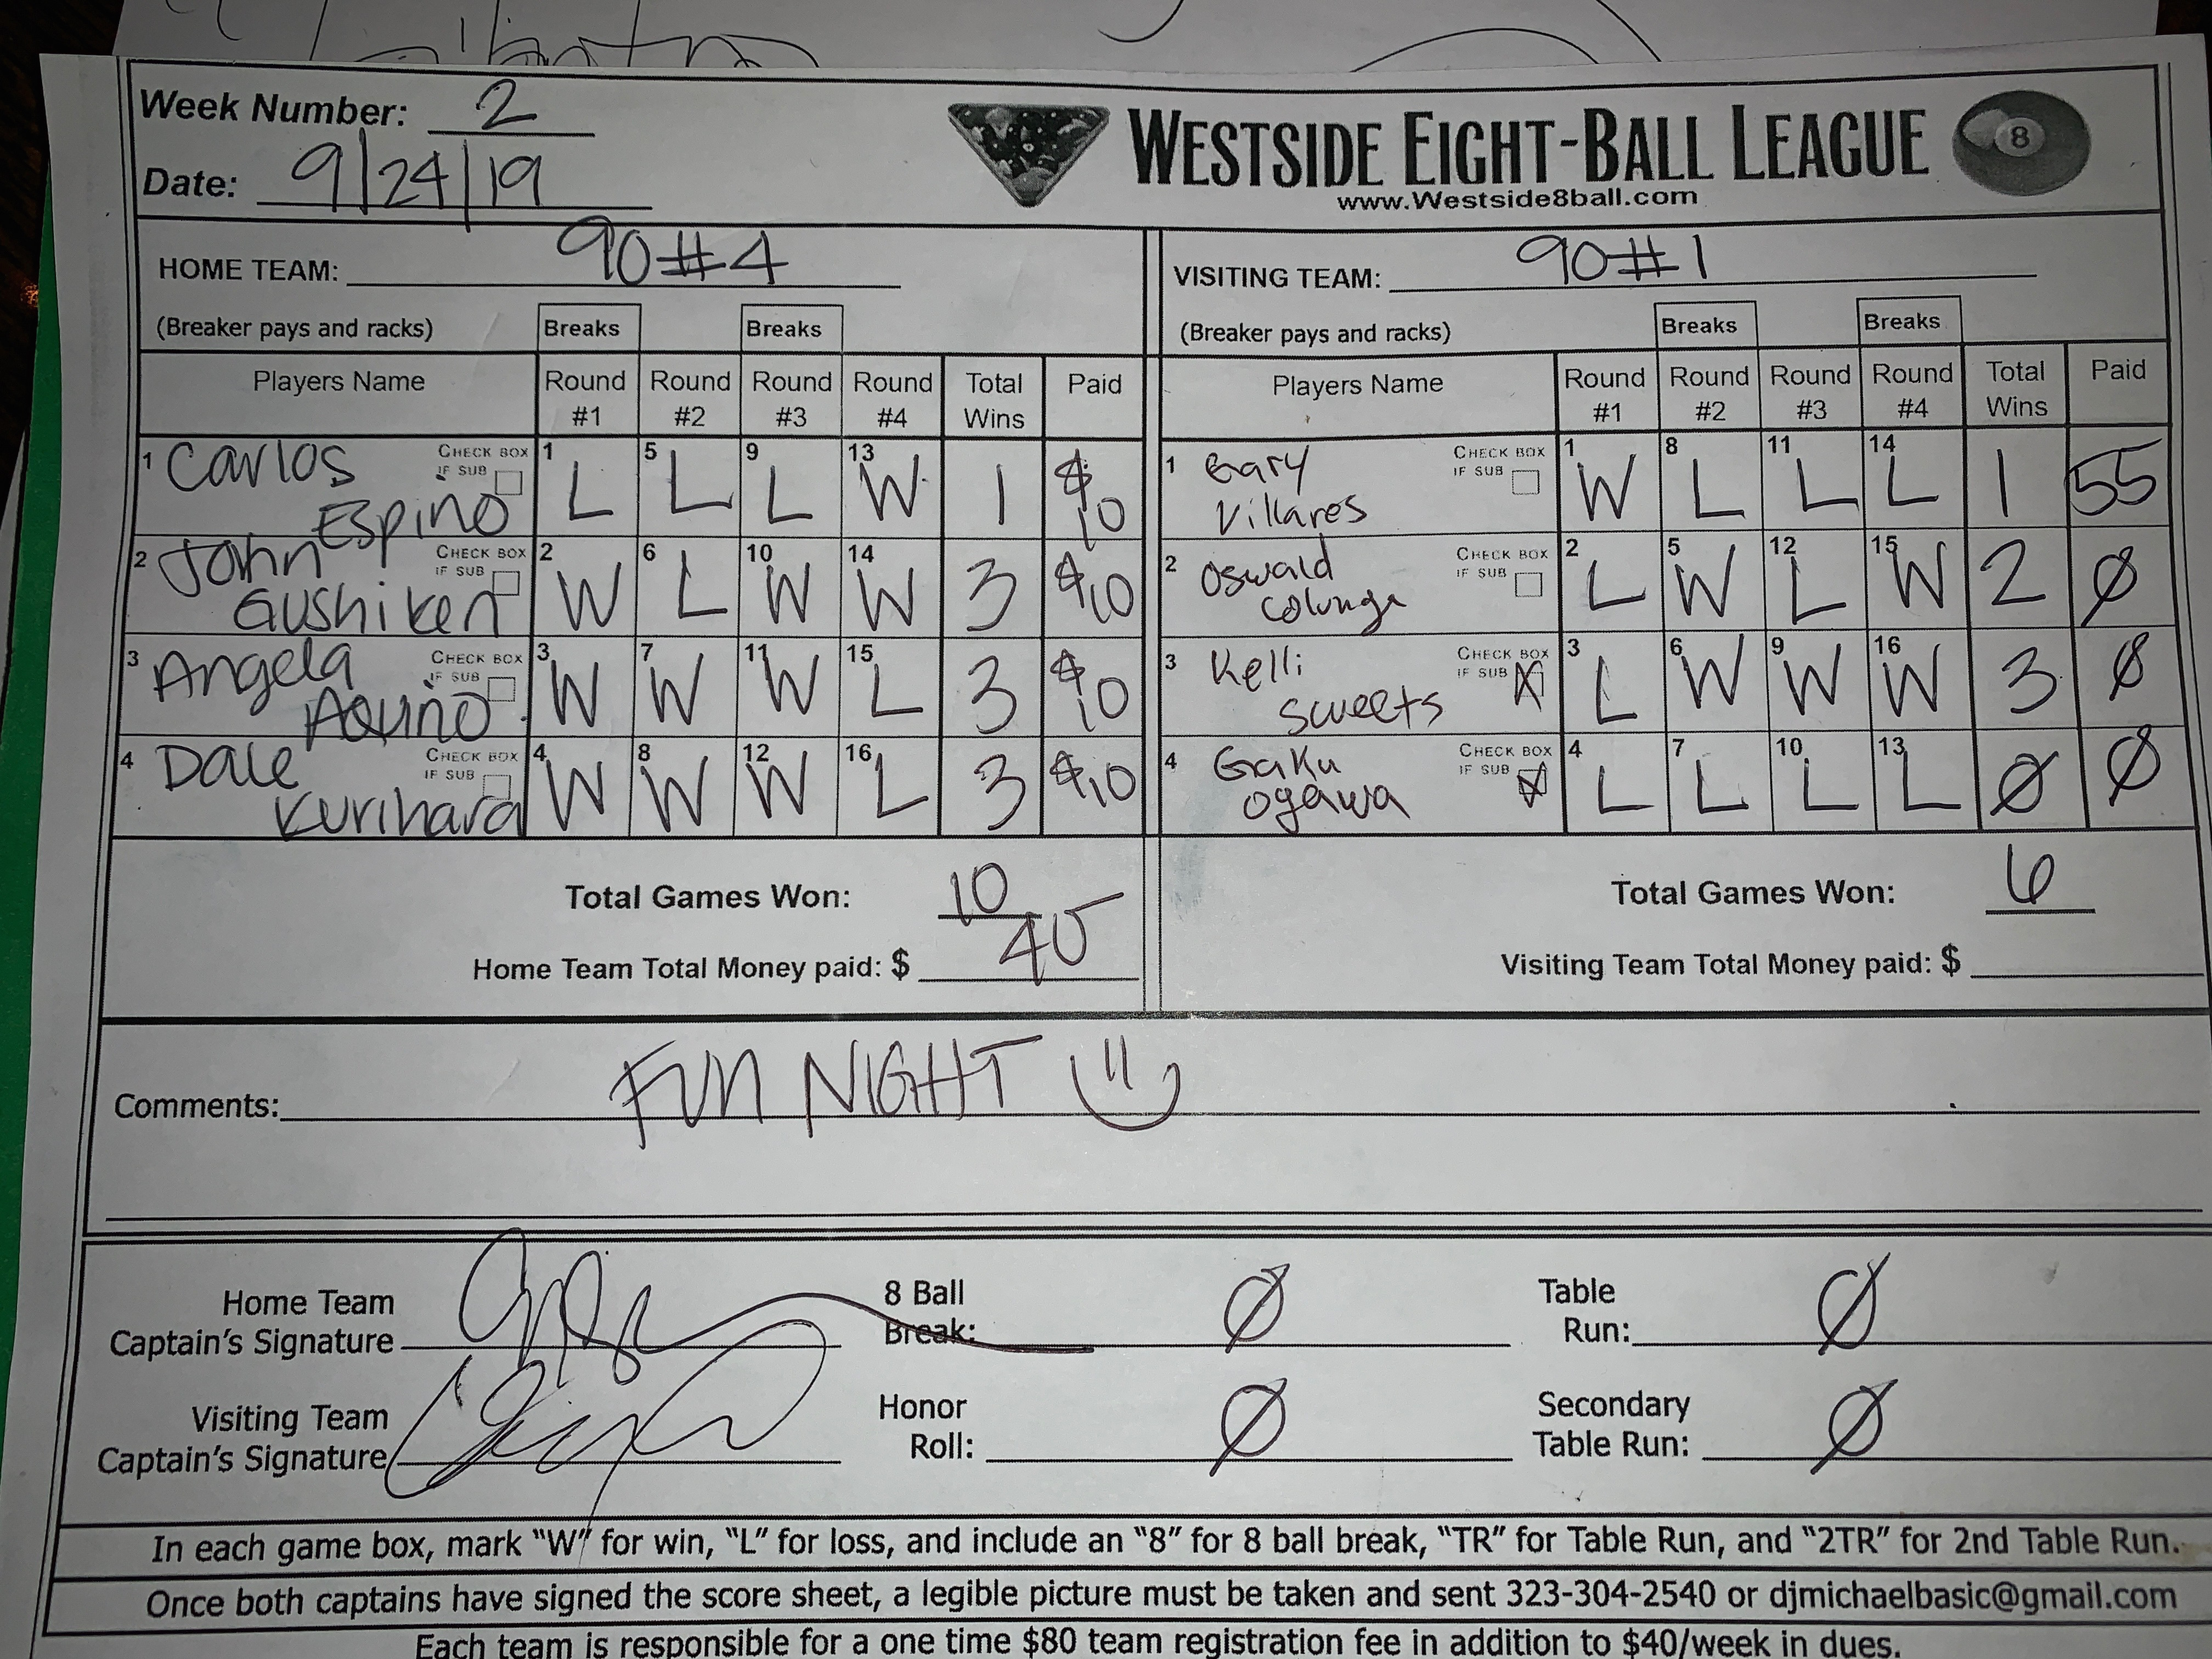 Week Number: 2
Date: 9/24/19
WESTSIDE EIGHT-BALL LEAGUE 8
www.Westside8ball.com
HOME TEAM: 90#4
VISITING TEAM: 90#1
(Breaker pays and racks) Breaks Breaks
(Breaker pays and racks) Breaks Breaks
Players Name Round #1 Round #2 Round #3 Round #4 Total Wins Paid
Players Name Round #1 Round #2 Round #3 Round #4 Total Wins Paid
1 Carlos Espino CHECK BOX IF SUB 1 L 5 L 9 L 13 W 1 $10
1 Gary Villares CHECK BOX IF SUB 1 W 8 L 11 L 14 L 1 55
2 John Gushiken CHECK BOX IF SUB 2 W 6 L 10 W 14 W 3 $10
2 Oswald Colunga CHECK BOX IF SUB 2 L 5 W 12 L 15 W 2 Ø
3 Angela Aquino CHECK BOX IF SUB 3 W 7 W 11 W 15 L 3 $10
3 Kelli Sweets CHECK BOX IF SUB X 3 L 6 W 9 W 16 W 3 Ø
4 Dale Kurihara CHECK BOX IF SUB 4 W 8 W 12 W 16 L 3 $10
4 Gaku Ogawa CHECK BOX IF SUB X 4 L 7 L 10 L 13 L Ø Ø
Total Games Won: 10
Total Games Won: 6
Home Team Total Money paid: $ 40
Visiting Team Total Money paid: $
Comments: FUN NIGHT
Home Team Captain's Signature
8 Ball Break: Ø
Table Run: Ø
Visiting Team Captain's Signature
Honor Roll: Ø
Secondary Table Run: Ø
In each game box, mark "W" for win, "L" for loss, and include an "8" for 8 ball break, "TR" for Table Run, and "2TR" for 2nd Table Run.
Once both captains have signed the score sheet, a legible picture must be taken and sent 323-304-2540 or djmichaelbasic@gmail.com
Each team is responsible for a one time $80 team registration fee in addition to $40/week in dues.